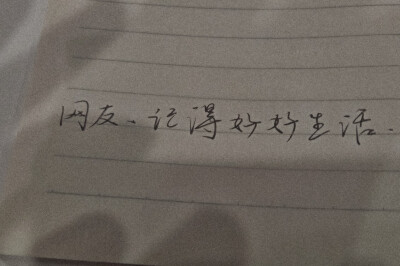 网友、记得好好生活.